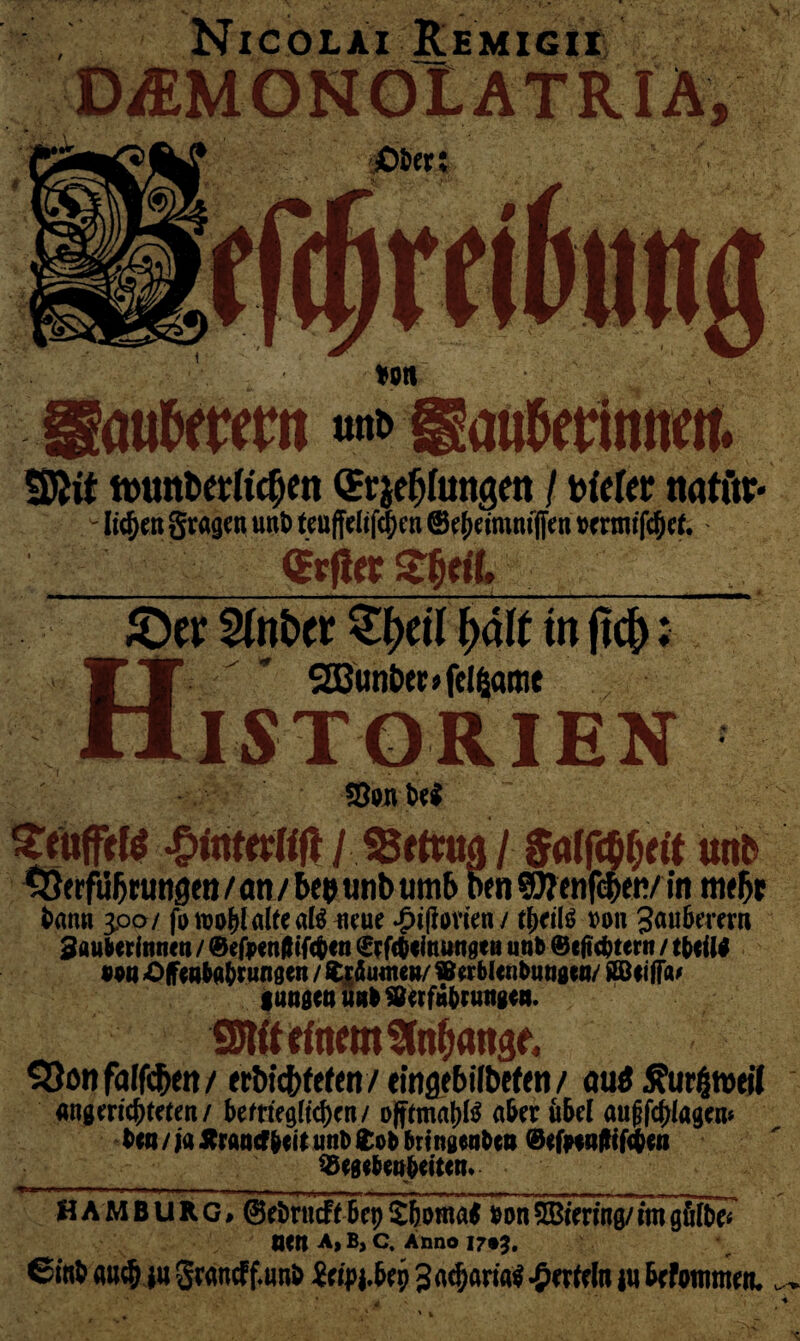 NICOLAI REMIGII
DÆMONOLATRIA,
Oder:
Beschreibung
von
Zauberern und Zauberinnen.
Mit wunderlichen Erzehlungen / vieler natür-
lichen Fragen und teuffelischen Geheimnissen vermischet.
Erster Theil.
Der Ander Theil hält in sich:
Wunder-selzame
HISTORIEN
Von des
Teuffels Hinterlist / Betrug / Falschheit und
Verführungen / an / bey und umb den Menschen / in mehr
dann 300 / so wohl alte als neue Historien / theils von Zauberern
Zauberinnen / Gespenstischen Erscheinungen und Gesichtern / theils
von Offenbahrungen / Träumen / Verblendungen / Weissa-
gungen und Verführungen.
Mit einem Anhange,
Von falschen / erdichteten / eingebildeten / aus Kurtzweil
angerichteten / betrieglichen / offtmahls aber übel außschlagen-
den / ja Kranckheit und Tod bringenden Gespenstischen
Begebenheiten.
HAMBURG, Gedruckt bey Thomas von Wiering / im gülde-
nen A, B, C. Anno 1703.
Sind auch zu Franckf. und Leipz. bey Zacharias Herteln zu bekommen.